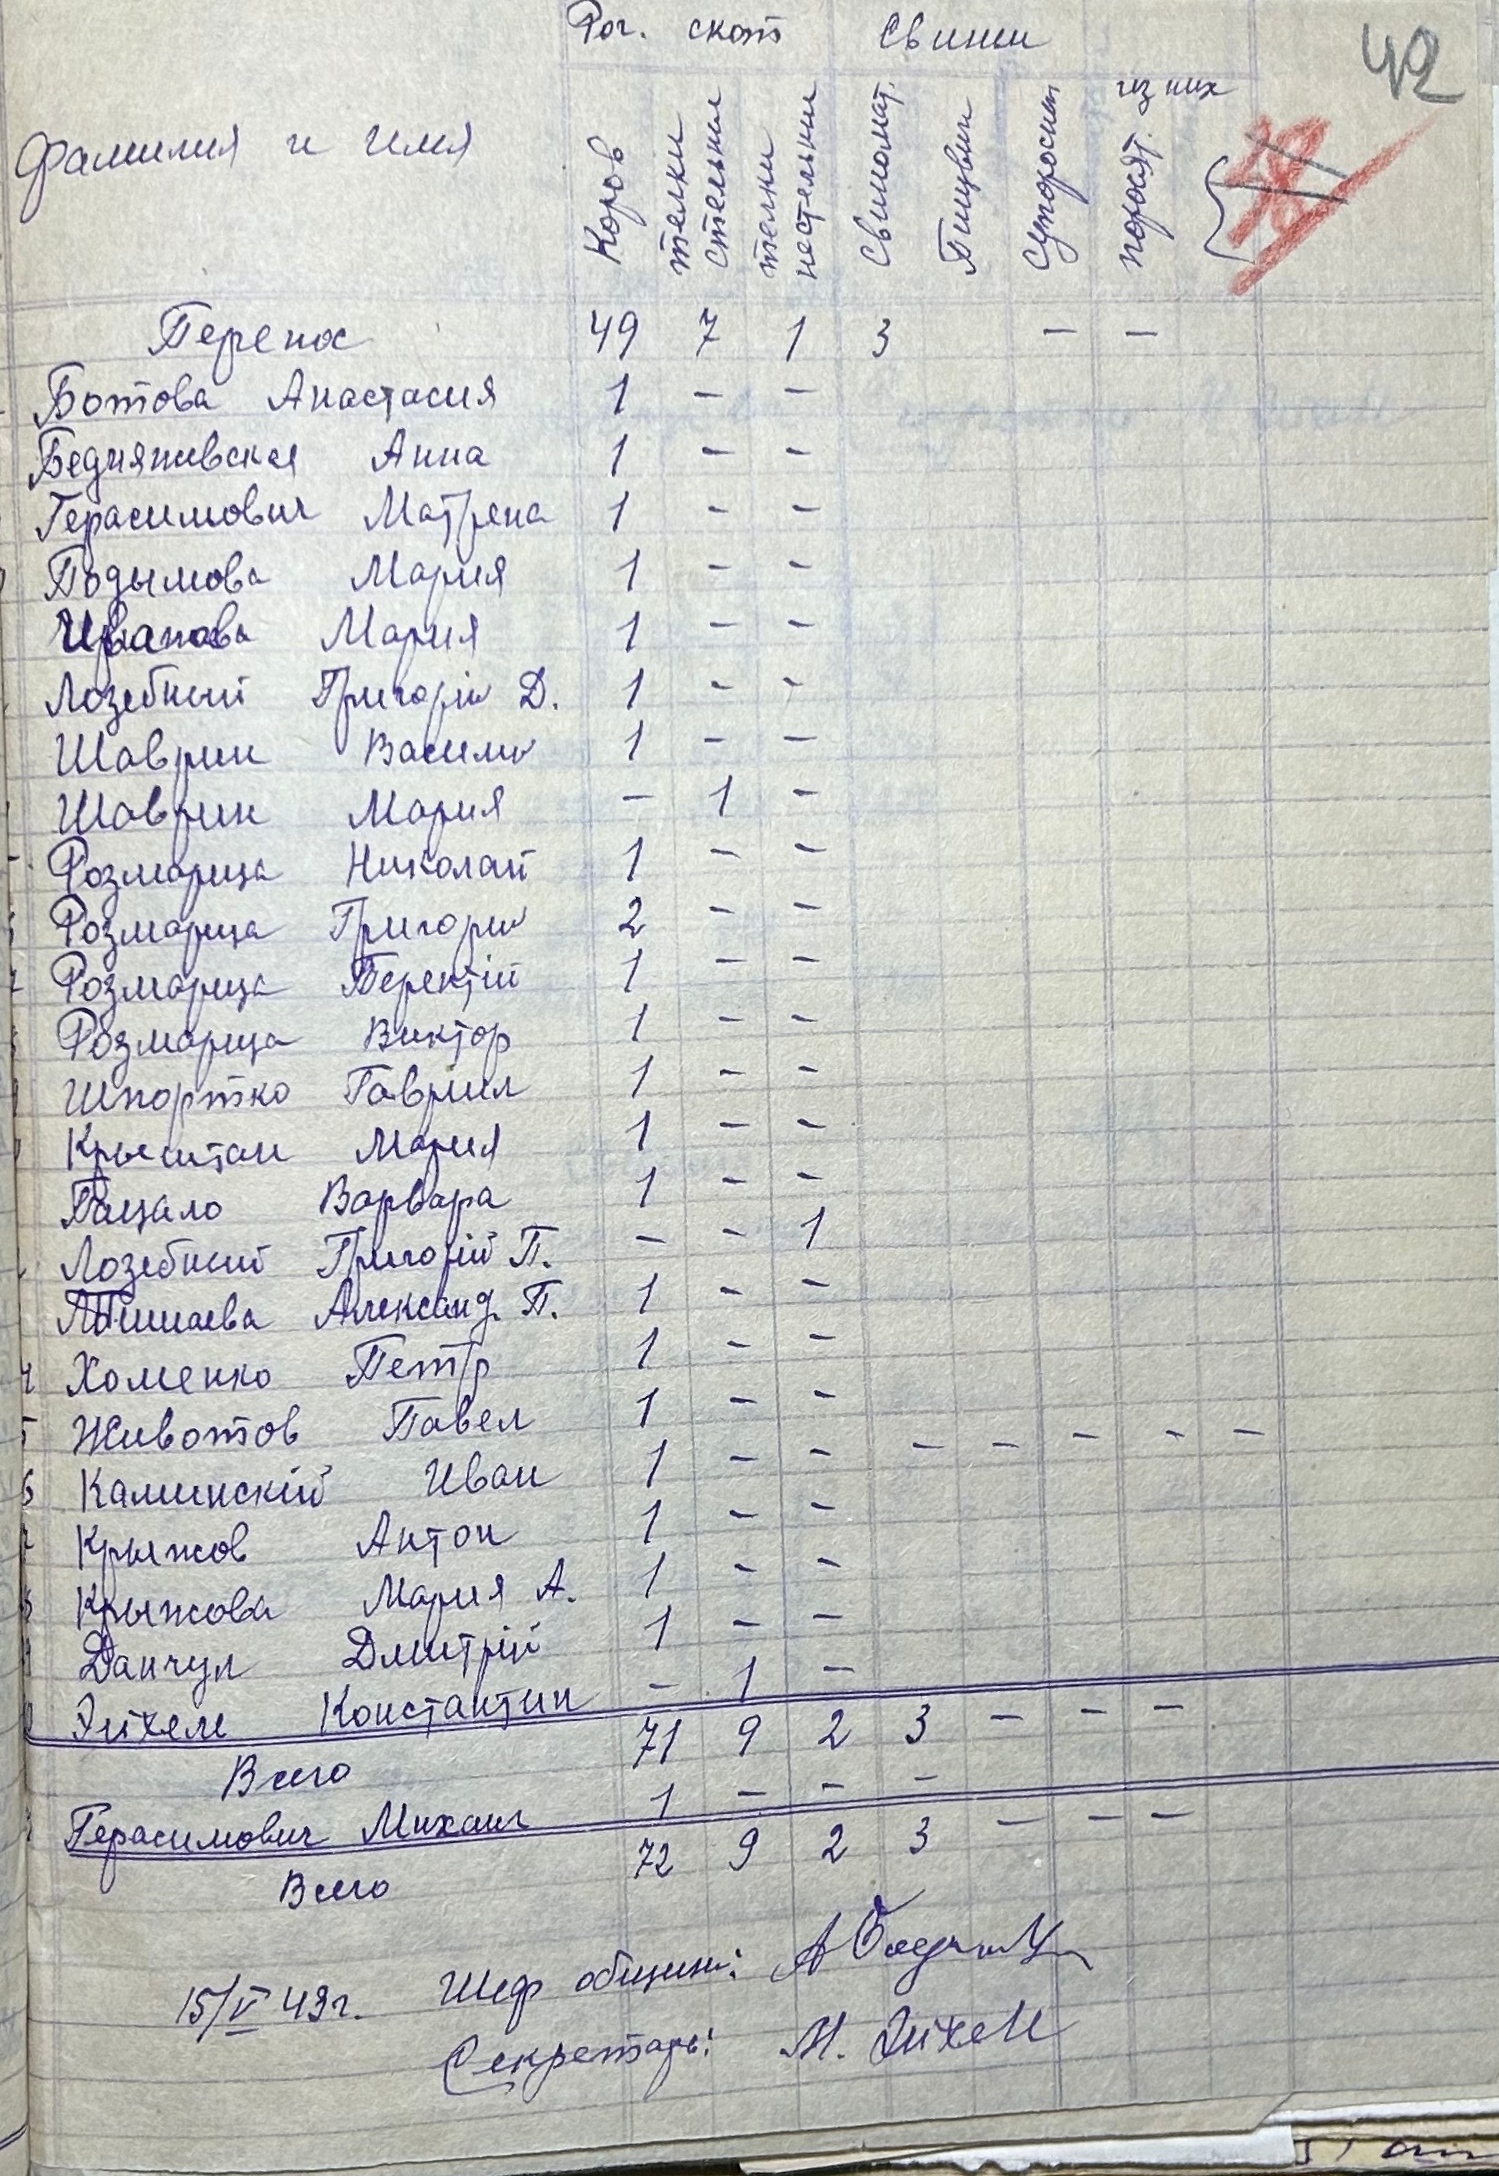 42
Рог. скот свиньи
фамилия и имя Коров телки стельныя телки нестельныя Свиномат. супоросныя из них поросят.
Перенос 49 7 1 3 – –
Ботова Анастасия 1 – –
Анна 1 – –
Герасимович Матрена 1 – –
Подымова Мария 1 – –
Мария 1 – –
Лозебний Григорій Д. 1 – –
Шаврин Василий 1 – –
Шаврин Мария – 1 –
Розмарица Николай 1 – –
Розмарица Григорий 2 – –
Розмарица 1 – –
Розмарица Виктор 1 – –
Шпортко Гаврил 1 – –
Крыштан Мария 1 – –
Пацало Варвара 1 – –
Лозебний Григорій П. – – 1
Александ. П. 1 – –
Хоменко Петр 1 – –
Животов Павел 1 – –
6 Каминскій Иван 1 – – – – – – –
Крыжов Антон 1 – –
Крыжова Мария А. 1 – –
Данчул Дмитрій 1 – –
Эйхем Константин – 1 –
Всего 71 9 2 3 – – –
Герасимович Михаил 1 – – –
Всего 72 9 2 3 – – –
15/V 43г. Шеф общины:
Секретарь: М. Эйхем